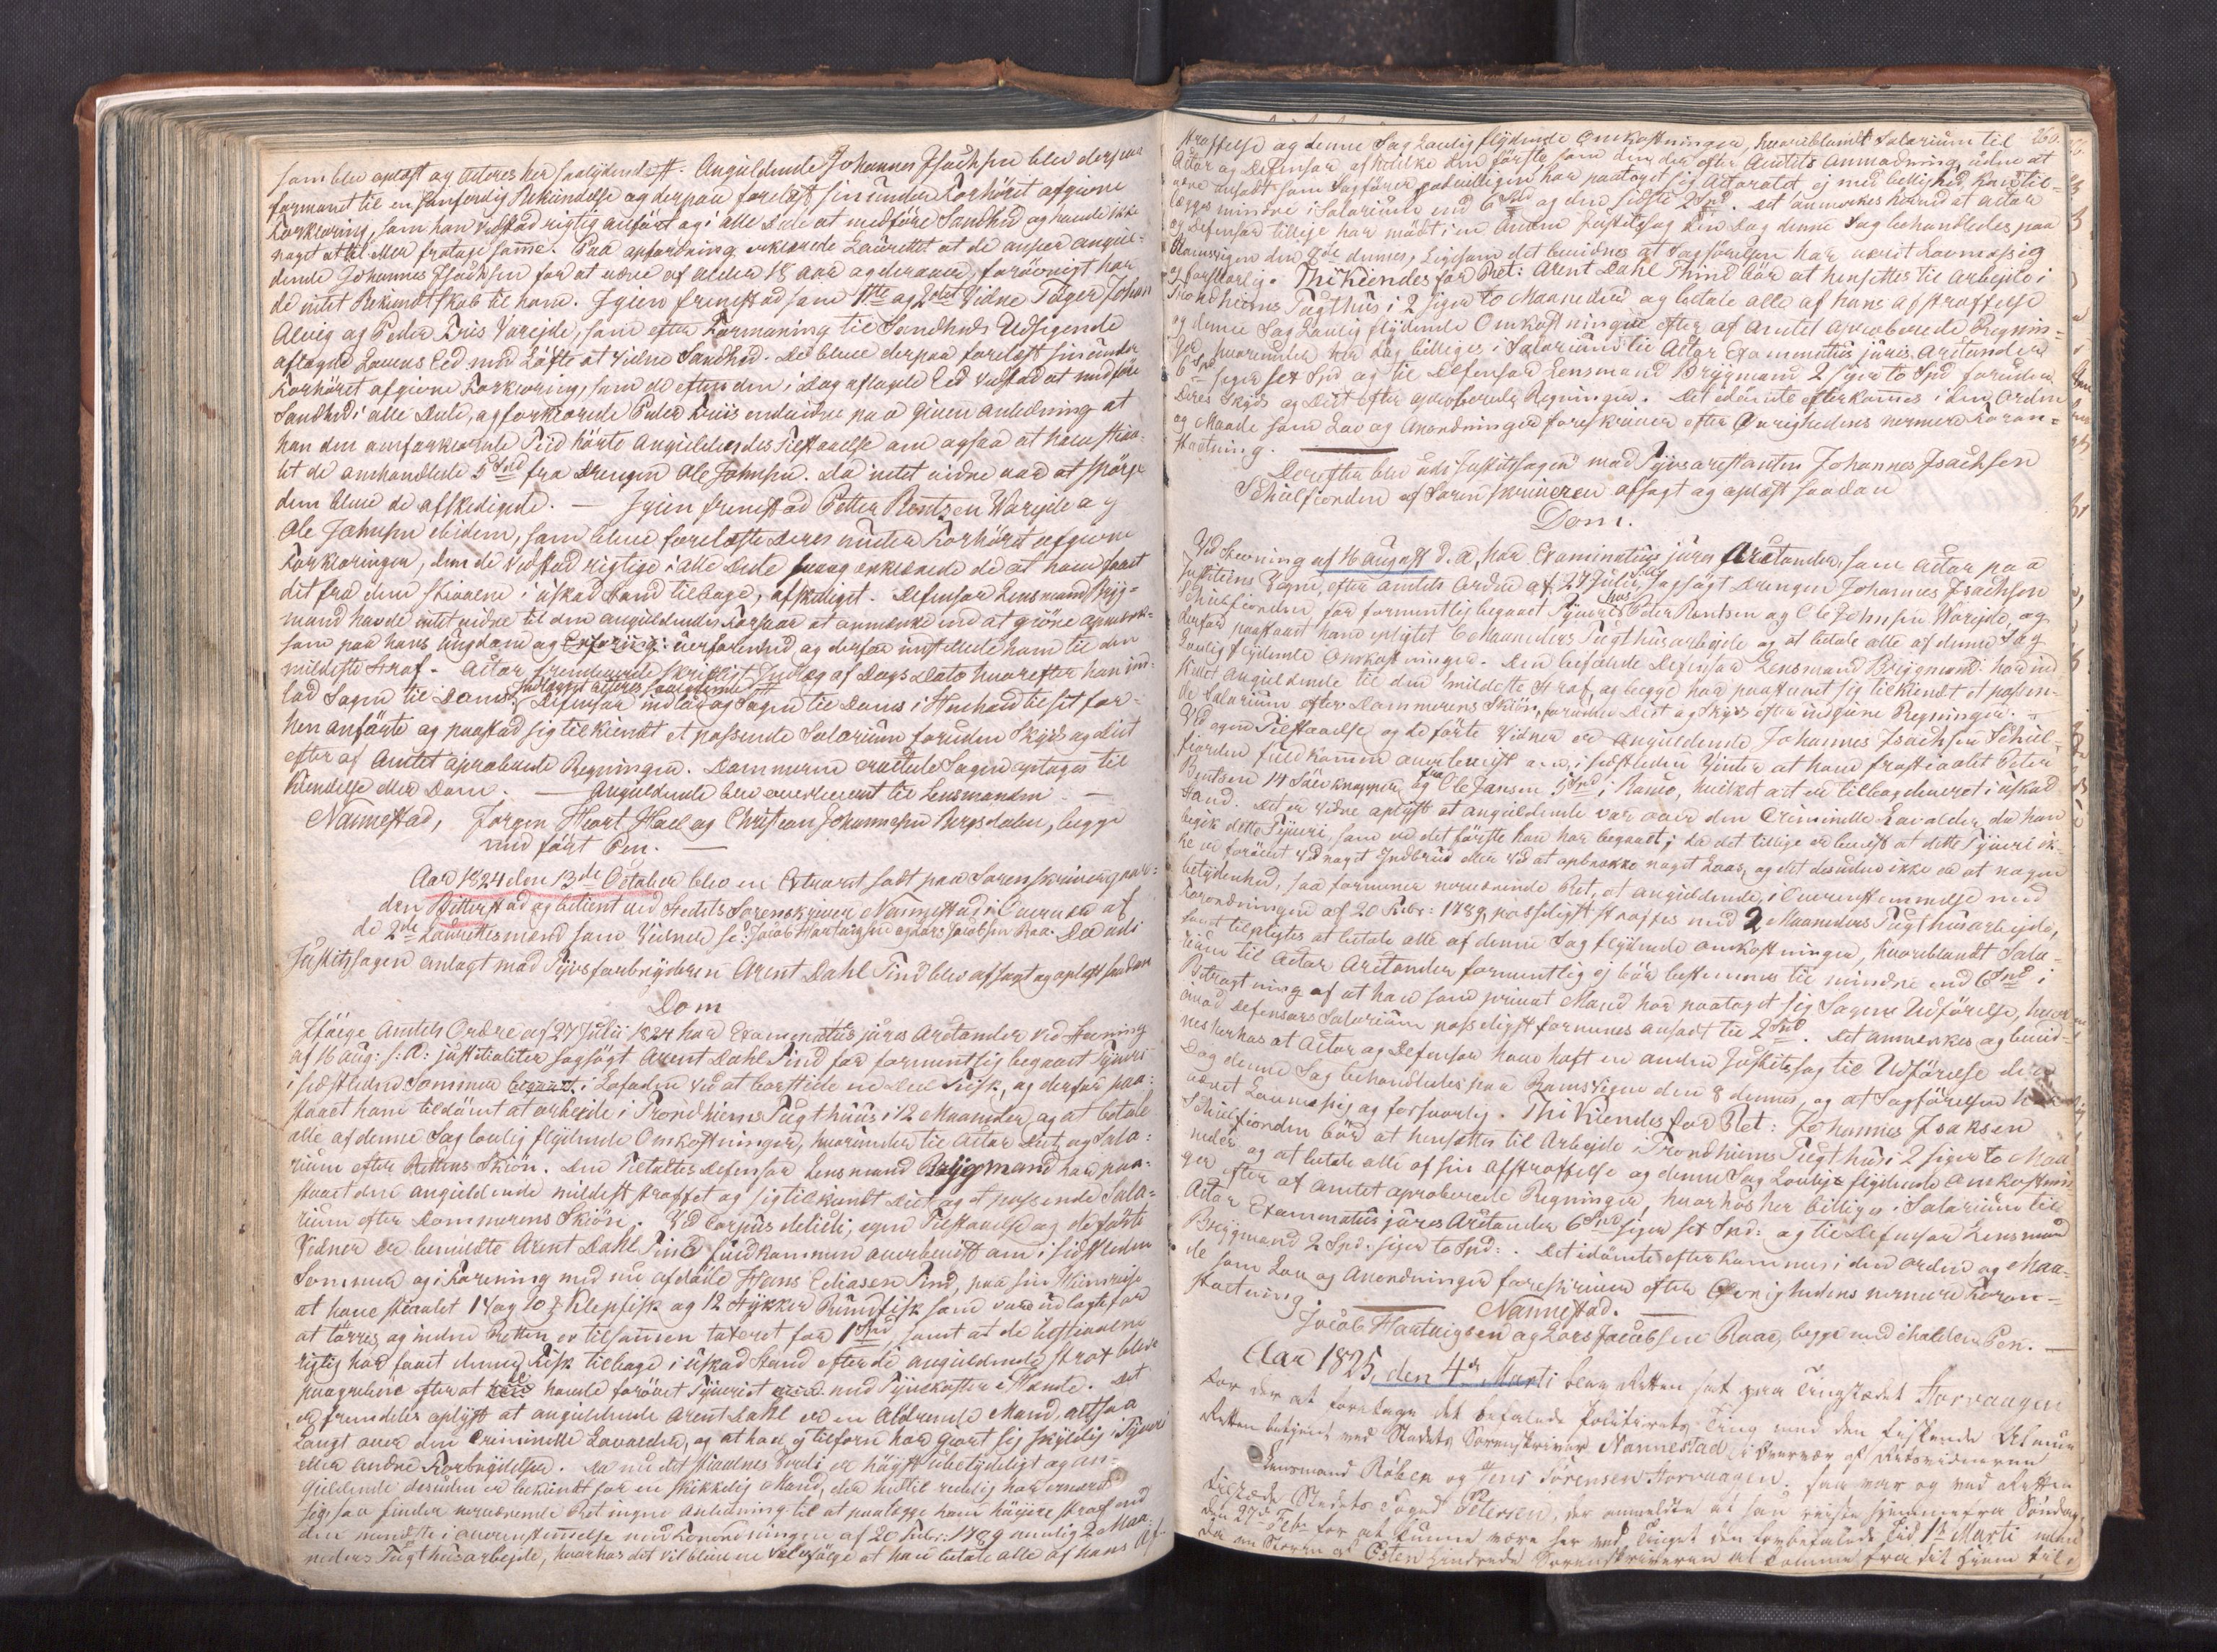 som blev oplæst og acteres her saalydende ft. Anguldende Johannes Isachsen blev derpaa
formanet til en sanferdig Bekiendelse og derpaa forelæst sin under Forhöret afgivne
Forklaring, som han vedstod rigtig anført og i alle Dele at medføre Sandhed og havde ikke
noget at til eller fratage samme. Paa opfordring erklærede Laurettet at de ansaa anguld-
dende Johannes Isachsen for at være af alder 18 aar og derover, forövrigt har
de intet Bekiendtskab til ham. Igien fremstod som 1ste og 2det Vidne Johan
Alvig og Peder Friis Varøjde, som efter Formaning til Sandheds Udsigende
aflagde Lovens Eed med Løfte at vidne Sandhed. De bleve derpaa forelæst sin under
Forhöret afgivne Forklaring, som de efter den i Dag aflagde Eed vedstod at medføre
Sandhed i alle Dele, og forklarede Peder Friis endvidre paa given anledning at
han den omforklarede Tiid hörte Anguldendes Tilstaaelse om ogsaa at have stiaa-
let de omhandlede 5 Spd fra Drengen Ole Johnsen. Da intet vidre var at spörge
dem bleve de afskedigede. — Igien fremstod Petter Bentzen Warøjde og
Ole Johnsen ibidem, som bleve forelæste deres under Forhöret afgivne
Forklaringer, dem de vedstod rigtige i alle Dele hvorog erklærede de at have faaet
det fra dem stiaalne i uskad Stand tilbage, afskediget. Defensor Lensmand Bryg-
mand havde intet vidre til den anguldendes Forsvar at anmærke end at giöre opmærk-
som paa hans Ungdom og uerfarenhed og derfor instillede ham til den
mildeste Straf. Actor fremlagde skriftligt Indlæg af Dags Dato hvorefter han ind-
lod Sagen til Doms. Indlægget acteres saalydende ft Defensor indlod og Sagen til Doms i Henhold til sit for-
hen anførte og paastod sig tilkiendt et passende Salarium foruden Skyds og diet
efter af Amtet aprobeerede Regninger. Dommeren eragtede Sagen optages til
Kiendelse eller Dom. — Anguldende blev overleveret til Lensmanden —
Nannestad, Jørgen Hiort Hall og Christian Johannesen Bergsdalen, begge
med fört Pen. —
Aar 1824 den 13de October blev en Extraret sadt paa Sorenskrivergaar-
den Bitterstad og betient ved Stedets Sorenskriver Nannestad i Overvær af
de 2de Laurettesmænd som Vidner se: Jacob Hartvigsen og Lars Jacobsen Raa. Der udi
Justitssagen anlagt mod Tyvsforbryderen Arent Dahl Tind blev afsagt og oplæst saadan
Dom
Ifølge Amtets Ordre af 27 Julii 1824 har Examinatus juris Arctander ved Stevning
af 16 aug: s: A: justitialiter sagsögt Arent Dahl Tind for formentlig begaaet Tyverie
i sidstledne Sommer i Lofoden ved at bortstiele en Deel Fisk, og derfor paa-
staaet ham tildømt at arbejde i Trondhiems Tugthuus i 12 Maaneder, og at betale
alle af denne Sag lovlig flydende Omkostninger, hvorunder til Actor Diet og Sala-
rium efter Rettens Skiön. Den Tiltaltes Defensor Lensmand Brygmand har paa-
staaet den anguldende mildest straffet og sig tilkiendt Diet og et passende Sala-
rium efter Dommerens Skiön. Ved corpus delicti, egen Tilstaaelse og de förte
Vidner er bemeldte Arent Dahl Tind fuldkommen overbeviist om i sidstledne
Sommer og i Forening med nu afdöde Hans Eliasen Tind, paa sin Hiemreise
at have stiaalet 1 Vog 10 ₰ Klepfisk og 12 stykker Rundfisk som vare udlagte for
at törres og inden Retten er tilsammen taxeret for 1 Spd, samt at de bestiaalne
rigtig har faaet denne Fisk tilbage i uskad Stand efter de anguldende strax bleve
paagrebne efter at de havde forövet Tyveriet med Tyvekoster i Hænde. Det
er fremdeles oplyst at anguldende Arent Dahl er en Aldrende Mand, altsaa
Langt over den Criminelle Lavalder, og at han ej tilforn har giort sig skyldig i Tyveri
eller andre Forbrydelser. Da nu det stiaalnes Værdi er högst ubetydeligt og an-
guldende desuden er bekiendt for en skikkelig Mand, der hidtil redelig har ernæret
sig, saa finder nærværende Ret ingen anledning til at paalægge ham höjere Straf end
den mindste i overenstemmelse med Forordningen af 20 Febr: 1789 nemlig 2 Maa-
neders Tugthusarbejde, hvorhos det vil blive en Selvfölge at han betale alle af hans Af-
260.
straffelse og denne Sag Lovlig flydende Omkostninger, hvoriblandt Salarium til
Actor og Defensor, af hvilke den förste som den der efter Amtets anmodning uden at
være ansadt som Sagförer godvilligen har paataget sig Actoratet, ej med billighed kan til-
lægges mindre i Salarium end 6 Spd og den sidste 2 Spd. Det anmerkes herved at actor
og Defensor tillige har mödt i en Anden Justitssag den Dag denne Sag behandledes paa
Ramsvigen den 8de dennes, Ligesom det bevidnes at Sagförelsen har været Lovmæssig
og forsvarlig. Thi Kiendes for Ret: Arent Dahl Thind bör at hensettes til arbejde i
Trondhiems Tugthus i 2 siger to Maaneder og betale alle af hans afstraffelse
og denne Sag Lovlig flydende Omkostninger efter af Amtet aproberede Regnin-
ger, hvorunder her dog billiges i Salarium til Actor Examinatus juris Arctander
6 Spd siger sex Spd og til Defensor Lensmand Brygmand 2 siger to Spd foruden
Deres Skyds og Diet efter aproberede Regninger. Det idömte efterkommes i den Orden
og Maade som Lov og Anordninger foreskriver efter Övrighedens nermere Foran-
staltning.
Derefter blev udi Justitssagen mod Tyvsarestanten Johannes Isachsen
Schielfiorden af Sorenskriveren afsagt og oplæst saadan
Dom.
Ved Stevning af 16 august d. a, har Examinatus juris Arctander, som Actor paa
Justitiens Vegne, efter Amtets Ordre af 27 Julii Sagsögt Drengen Johannes Isachsen
Schielfiorden, for formentlig begaaet Tyverie hos Peter Bentsen og Ole Johnsen Warøjde, og
derfor paastaaet ham epligtet 6 Maaneders Tugthusarbejde og at betale alle af denne Sag
Lovlig flydende Omkostninger. Den befalede Defensor Lensmand Brygmand har ind-
stillet anguldende til den mildeste Straf, og begge har paastaaet sig tilkiendt et passen-
de Salarium efter Dommerens Skiön, foruden Diet og Skyds efter indgivne Regninger. —
Ved egen Tilstaaelse og de förte Vidner er Anguldende Johannes Isachsen Schiel-
fiorden fuldkommen overbeviist om, i sidstleden Vinter at have frastiaalet Peter
Bentsen 14 Sölvknapper og fra Ole Jansen 5 Spd i Ræmo, hvilket alt er tilbageleveret i uskad
Stand. Det er vidre oplyst at anguldende var over den Criminelle Lavalder, da han
begik dette Tyverie, som er det förste han har begaaet; da det tillige er beviist at dette Tyveri ik-
ke er forövet ved noget Indbrud eller ved at opbrække noget Laas, og det desuden ikke er af nogen
betydenhed, saa formener nærværende Ret, at anguldende, i Overenstemmelse med
Forordningen af 20 Febr: 1789, passeligst straffes med 2 Maaneders Tugthusarbejde,
samt tilpligtes at betale alle af denne Sag flydende omkostninger, hvoriblandt Sala-
rium til Actor Arctander formentlig ej bör bestemmes til mindre end 6 Spd i
Betragtning af at han som privat Mand har paataget sig Sagens Udförelse, hvor
imod Defensors Salarium passeligst formenes ansadt til 2 Spd. Det anmerkes og bevid-
nes herhos at Actor og Defensor have haft en anden Justitssag til Udförelse den
Dag denne Sag behandledes paa Ramsvigen den 8 dennes, og at Sagförelsen har
været Lovmessig og forsvarlig. Thi Kiendes for Ret: Johannes Isaksen
Schielfiorden bör at hensettes til Arbejde i Trondhiems Tugthus i 2 siger to Maa-
neder og at betale alle af sin afstraffelse og denne Sag Lovligt flydende omkostnin-
ger efter af Amtet aproberede Regninger, hvorhos her billiges i Salarium til
Actor Examinatus juris Arctander 6 Spd siger sex Spd: og til Defensor Lensmand
Brygmand 2 Spd: siger to Spd: . Det idömte efterkommes i den orden og Maa-
de som Lov og Anordninger foreskriver efter Övrighedens nermere Foran-
staltning. — Nannestad. —
Jacob Hartvigsen og Lars Jacobsen Raae, begge med iholden Pen. —
Aar 1825, den 4de Marti blev Retten sat paa Tingstædet Storvaagen
for der at foretage det befalede Ting med den fiskende Almue
Retten betjent ved Stedets Sorenskriver Nannestad i Overvær af Retsvidnerne
Lensmand Röken og Jens Sörensen Storvaagen. Som var og ved Retten
tilstæde Stedets Foged Petersen, der anmeldte at han reiste hjemmefra Söndag
den 27de Febr for at kunne være her ved Tinget den forbefalede Tid 1st Marti, men
da en Storm af Östen hindrede Sorenskriveren at komme fra sit Hjem til